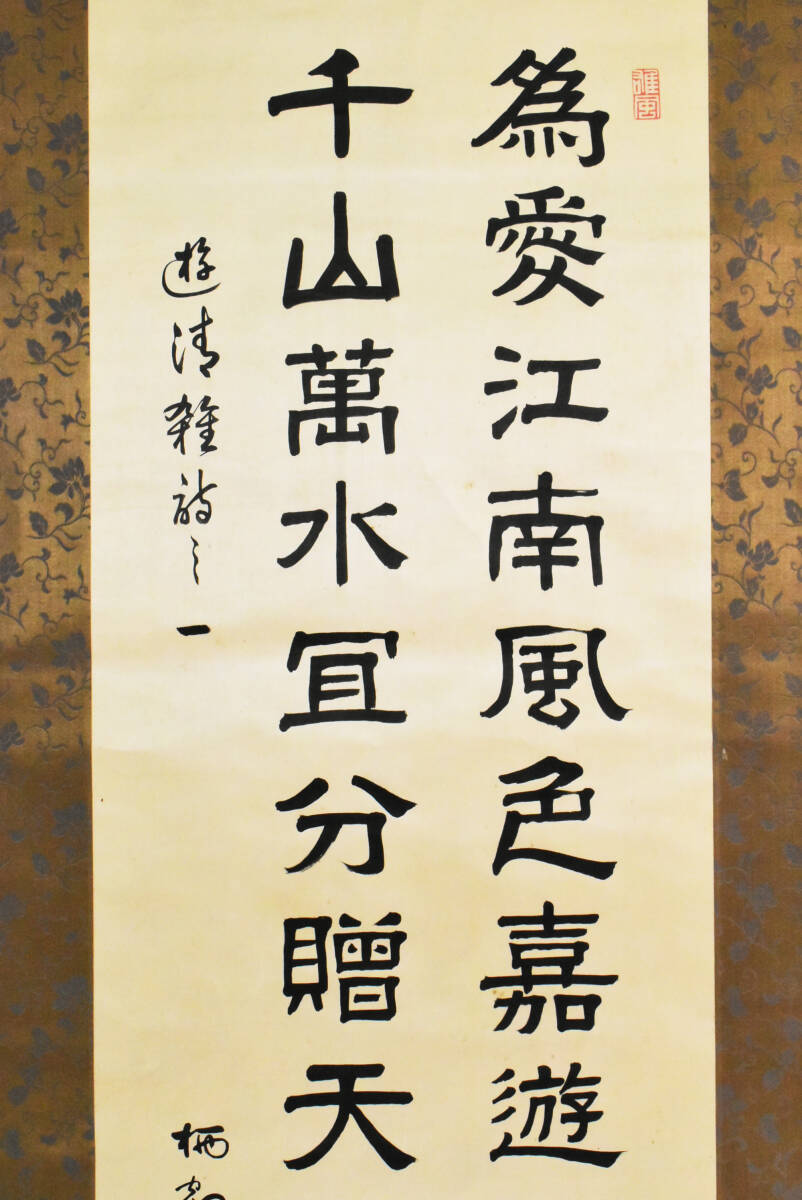 為愛江南風色嘉遊
千山萬水宜分贈天
遊清雜詩之一
栖